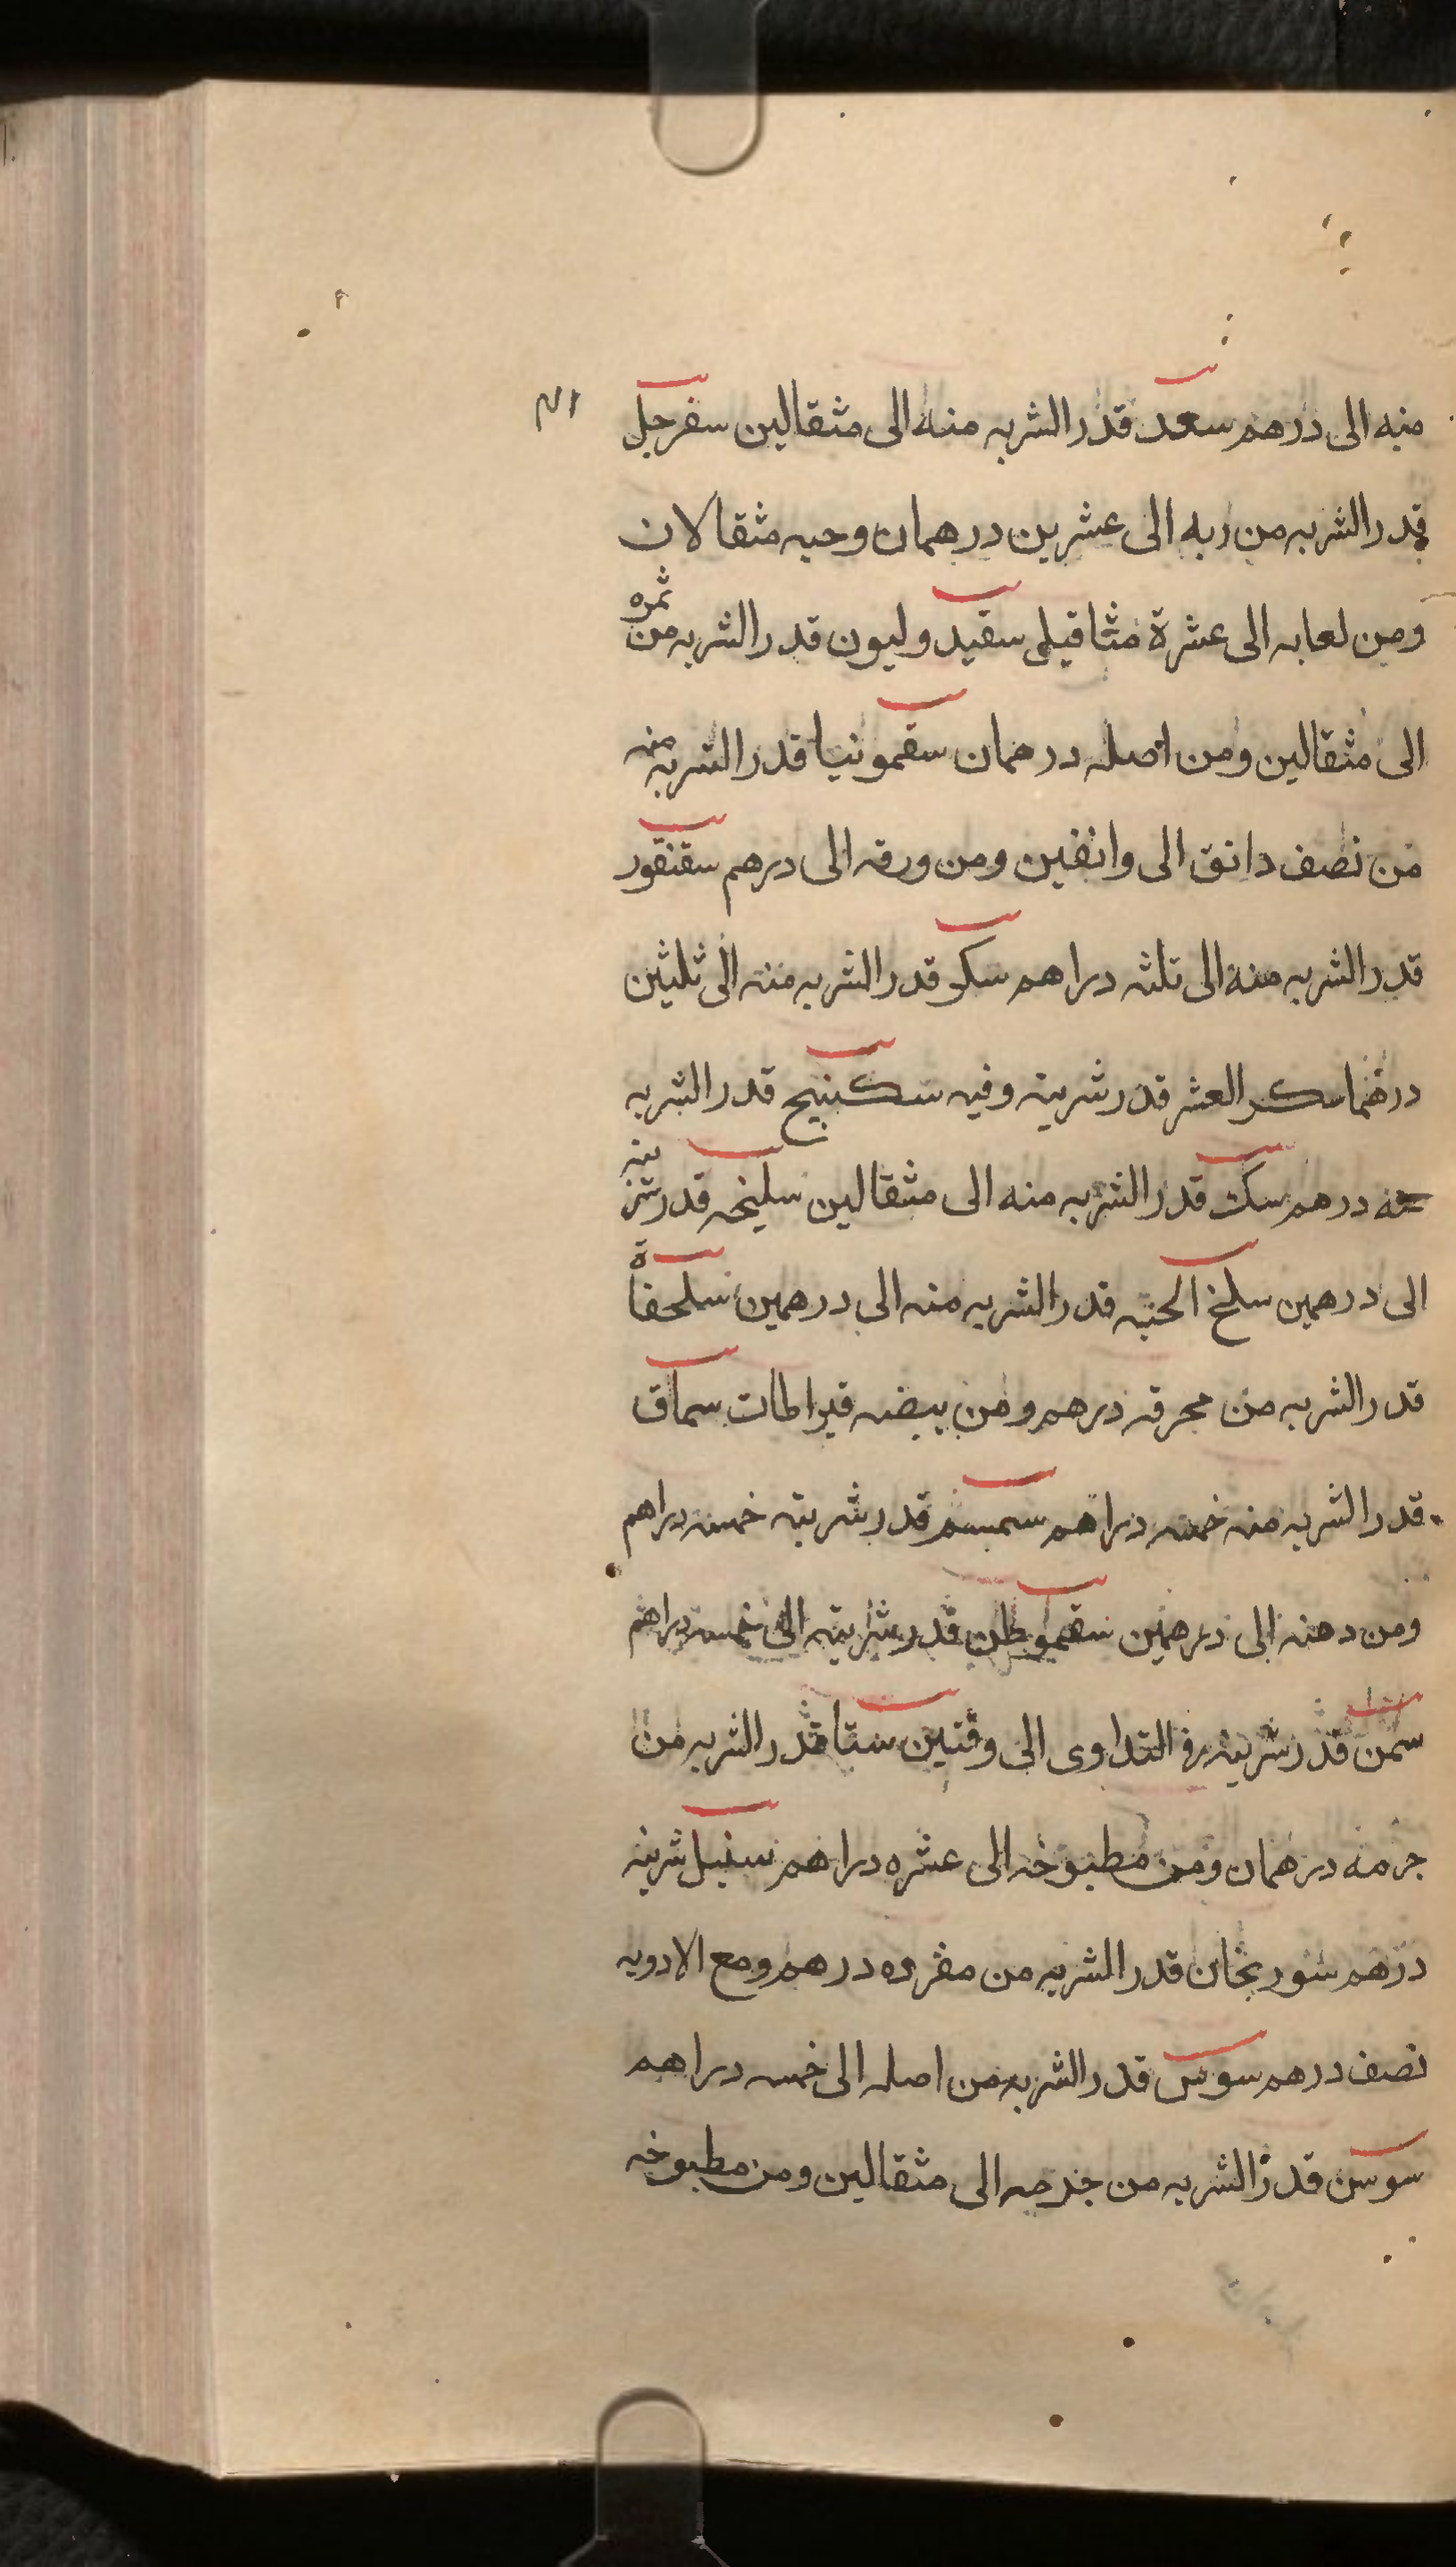 منه الى درهم سعد قدر الشربه منه الى مثقالين سفرجل
قدر الشربه من ربه الى عشرين درهمان وحبه مثقالان
ومن لعابه الى عشرة مثاقيلى سقيد وليون قدر الشربه من ثمره
الى مثقالين ومن اصله درهمان سقمونيا قدر الشربه منه
من نصف دانق الى وانفين ومن ورقه الى درهم سقنقور
قدر الشربه منه الى ثلثه دراهم سكر قدر الشربه منه الى ثلثين
درهما سكر العشر قدر شربته وفيه سكبنيج قدر الشربه
منه درهم سك قدر الشربه منه الى مثقالين سليخه قدر شربته
الى درهمين سلخ الحيه قدر الشربه منه الى درهمين سلحفاة
قدر الشربه من محرقه درهم ومن بيضه قيراطات سماق
قدر الشربه منه خمسه دراهم سمسم قدر شربته خمسه دراهم
ومن دهنه الى درهمين سقموطن قدر شربته الى خمسه دراهم
سمن قدر شربته في التداوى الى وقتين سنا قدر الشربه من
جرمه درهمان ومن مطبوخه الى عشره دراهم سنبل شربته
درهم سورنجان قدر الشربه من مفرده درهم ومع الادويه
نصف درهم سوس قدر الشربه من اصله الى خمسه دراهم
سوسن قدر الشربه من جرمه الى مثقالين ومن مطبوخه